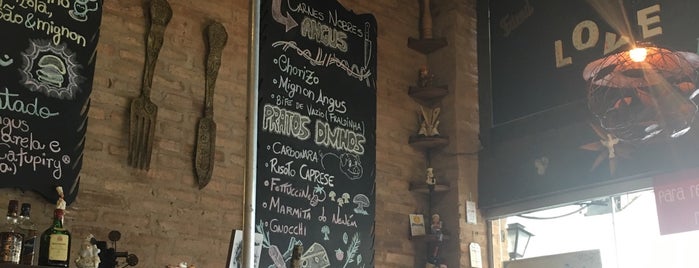 ão & mignon
tado
ngus
arela e
Catupiry®
Carnes Nobres
ANGUS
• Chorizo
• Mignon Angus
• Bife de Vazio (Fraldinha)
PRATOS DIVINOS
• Carbonara
• Risoto Caprese
• Fettuccine
• Marmita do Neném
• Gnocchi
LOVE
Para